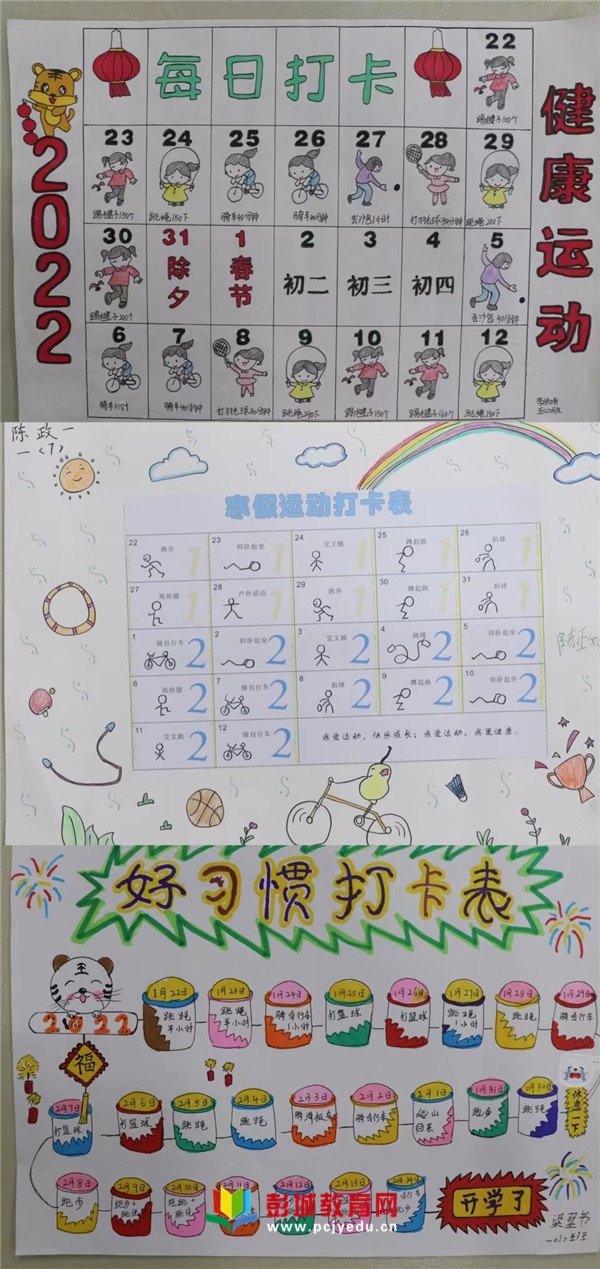 每日打卡
健康运动
2022
22
踢毽子100个
23 24 25 26 27 28 29
踢毽子150个 跳绳150下 骑车40分钟 骑车40分钟 丢沙包1小时 打羽毛球30分钟 跳绳200下
30 31 1 2 3 4 5
除夕 春节 初二 初三 初四
踢毽子200个 丢沙包40分钟
6 7 8 9 10 11 12
骑车1小时
陈政一
一(7)
寒假运动打卡表
22 跑步 1 23 仰卧起坐 1 24 交叉跳 1 25 蹲起跳 1 26 拍球 1
27 高抬腿 1 28 户外活动 1 29 跑步 1 30 蹲起跳 1 31 拍球 1
1 骑自行车 2 2 仰卧起坐 2 3 交叉跳 2 4 跳绳 2 5 仰卧起坐 2
6 高抬腿 2 7 骑自行车 2 8 拍球 2 9 蹲起跳 2 10 仰卧起坐 2
11 交叉跳 2 12 骑自行车 2 我爱运动，快乐成长；我爱运动，我更健康。
好习惯打卡表
王
2022
福
1月22日 1月23日 1月24日 1月25日 1月26日 1月27日 1月28日 1月29日
跳绳半小时 跳绳半小时 骑自行车1小时 打篮球 打篮球 跳绳1小时 跳绳 骑自行车
2月7日 2月6日 2月5日 2月4日 2月3日 2月2日 2月1日 1月31日 1月30日
打篮球 打篮球 跳绳 跳绳 骑滑板车 骑自行车 爬山 跑步 跳绳
休息一下
2月8日 2月9日 2月10日 2月11日 2月12日 2月13日 2月14日
跑步
开学了
彭城教育网
www.pcjyedu.cn